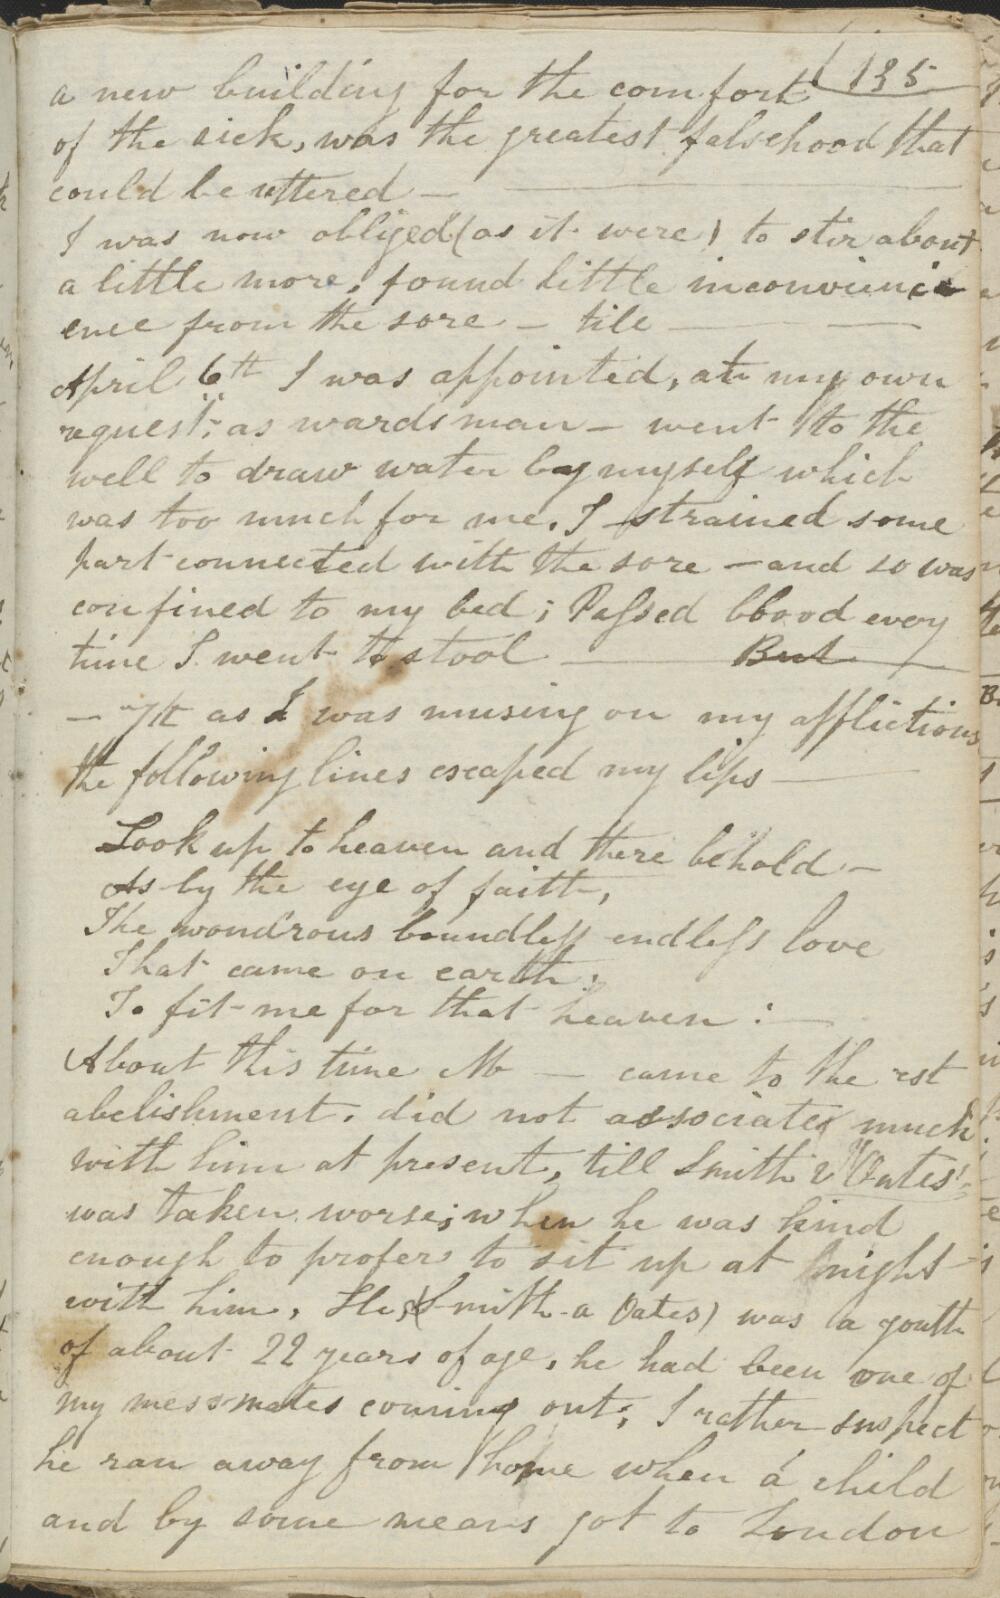 135
a new building for the comfort
of the sick, was the greatest falsehood that
could be uttered —
I was now obliged (as it were) to stir about
a little more, found little inconvienci
ence from the sore — tile —
April 6th I was appointed, at my own
request; as wardsman — went to the
well to draw water by myself which
was too much for me. I strained some
part connected with the sore — and so was
confined to my bed; Passed blood every
time I went to stool — But
— 7th as I was musing on my afflictions
the following lines escaped my lips —
Look up to heaven and there behold —
As by the eye of faith,
The wondrous boundless endless love
That came on earth;
To fit me for that heaven : —
About this time Mr — came to the est
abelishment. did not associate much
with him at present, till Smith v Oates
was taken worse; when he was kind
enough to profer to sit up at night
with him, He, (Smith a Oates) was a youth
of about 22 years of age, he had been one of
my messmates coming out; I rather suspect
he ran away from home when a child
and by some means got to London